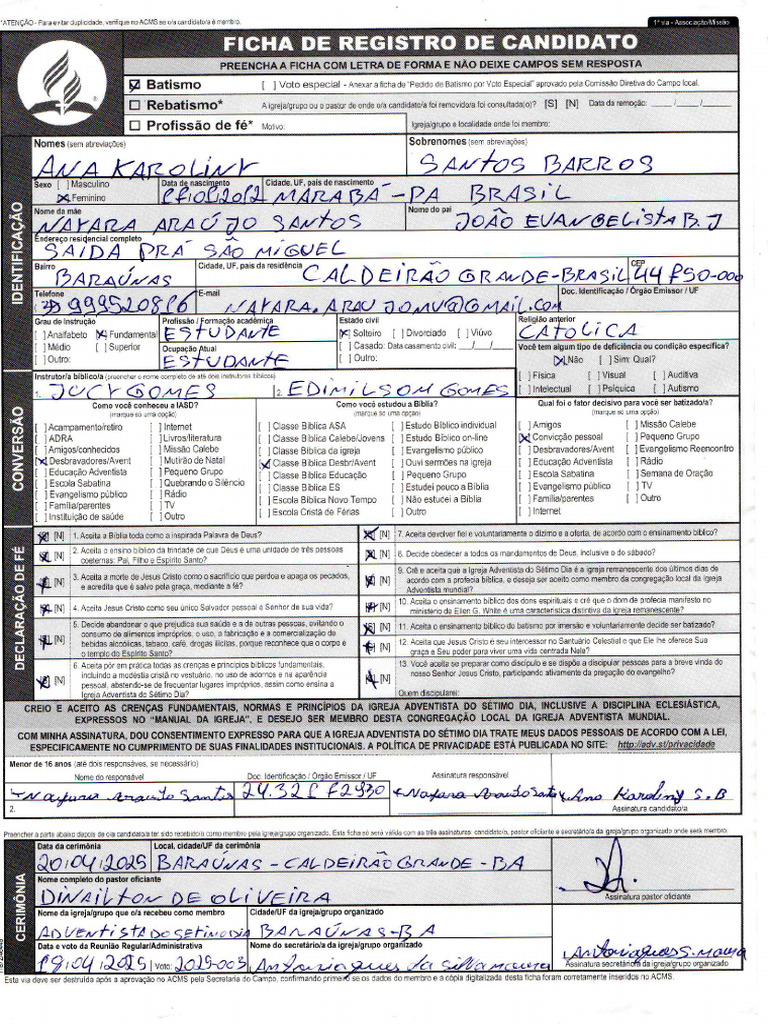 *ATENÇÃO - Para evitar duplicidade, verifique no ACMS se o/a candidato/a é membro.
1ª via - Associação/Missão
FICHA DE REGISTRO DE CANDIDATO
PREENCHA A FICHA COM LETRA DE FORMA E NÃO DEIXE CAMPOS SEM RESPOSTA
[x] Batismo [ ] Voto especial - Anexar a ficha de "Pedido de Batismo por Voto Especial" aprovado pela Comissão Diretiva do Campo local.
Rebatismo* A igreja/grupo ou o pastor de onde o/a candidato/a foi removido/a foi consultado(a)? [S] [N] Data da remoção: ___/___/___
Profissão de fé* Motivo: Igreja/grupo e localidade onde foi membro:
IDENTIFICAÇÃO
Nomes (sem abreviações) Sobrenomes (sem abreviações)
ANA KAROLINY SANTOS BARROS
Sexo [ ] Masculino Data de nascimento Cidade, UF, país de nascimento
[x] Feminino MARABÁ-PA BRASIL
Nome da mãe Nome do pai
NAYARA ARAÚJO SANTOS JOÃO EVANGELISTA B. J
Endereço residencial completo
SAIDA PRÁ SÃO MIGUEL
Bairro Cidade, UF, país da residência CEP
BARAÚNAS CALDEIRÃO GRANDE-BRASIL
Telefone E-mail Doc. Identificação / Órgão Emissor / UF
NAYARA.ARAUJOMV@GMAIL.COM
Grau de instrução Profissão / Formação acadêmica Estado civil Religião anterior
[ ] Analfabeto [x] Fundamental ESTUDANTE [x] Solteiro [ ] Divorciado [ ] Viúvo CATOLICA
[ ] Médio [ ] Superior Ocupação Atual [ ] Casado: Data casamento civil: ___/___/___ Você tem algum tipo de deficiência ou condição específica?
[ ] Outro: ESTUDANTE [ ] Outro: [x] Não [ ] Sim: Qual?
[ ] Física [ ] Visual [ ] Auditiva
[ ] Intelectual [ ] Psíquica [ ] Autismo
CONVERSÃO
Instrutor/a bíblico/a (preencher o nome completo de até dois instrutores bíblicos)
1. JUCY GOMES 2. EDIMILSOM GOMES
Como você conheceu a IASD? Como você estudou a Bíblia? Qual foi o fator decisivo para você ser batizado/a?
(marque só uma opção) (marque só uma opção) (marque só uma opção)
[ ] Acampamento/retiro [ ] Internet [ ] Classe Bíblica ASA [ ] Estudo Bíblico individual [ ] Amigos [ ] Missão Calebe
[ ] ADRA [ ] Livros/literatura [ ] Classe Bíblica Calebe/Jovens [ ] Estudo Bíblico on-line [x] Convicção pessoal [ ] Pequeno Grupo
[ ] Amigos/conhecidos [ ] Missão Calebe [ ] Classe Bíblica da igreja [ ] Evangelismo público [ ] Desbravadores/Avent [ ] Evangelismo Reencontro
[x] Desbravadores/Avent [ ] Mutirão de Natal [x] Classe Bíblica Desbr/Avent [ ] Ouvi sermões na igreja [ ] Educação Adventista [ ] Rádio
[ ] Educação Adventista [ ] Pequeno Grupo [ ] Classe Bíblica Educação [ ] Pequeno Grupo [ ] Escola Sabatina [ ] Semana de Oração
[ ] Escola Sabatina [ ] Quebrando o Silêncio [ ] Classe Bíblica ES [ ] Estudei pouco a Bíblia [ ] Evangelismo público [ ] TV
[ ] Evangelismo público [ ] Rádio [ ] Escola Bíblica Novo Tempo [ ] Não estudei a Bíblia [ ] Família/parentes [ ] Outro
[ ] Família/parentes [ ] TV [ ] Escola Cristã de Férias [ ] Outro [ ] Internet
[ ] Instituição de saúde [ ] Outro
DECLARAÇÃO DE FÉ
[x] [N] 1. Aceita a Bíblia toda como a inspirada Palavra de Deus?
[x] [N] 2. Aceita o ensino bíblico da trindade de que Deus é uma unidade de três pessoas coeternas: Pai, Filho e Espírito Santo?
[x] [N] 3. Aceita a morte de Jesus Cristo como o sacrifício que perdoa e apaga os pecados, e acredita que é salvo pela graça, mediante a fé?
[x] [N] 4. Aceita Jesus Cristo como seu único Salvador pessoal e Senhor de sua vida?
[x] [N] 5. Decide abandonar o que prejudica sua saúde e a de outras pessoas, evitando o consumo de alimentos impróprios, o uso, a fabricação e a comercialização de bebidas alcóolicas, tabaco, café, drogas ilícitas, porque reconhece que o corpo é o templo do Espírito Santo?
[x] [N] 6. Aceita pôr em prática todas as crenças e princípios bíblicos fundamentais, incluindo a modéstia cristã no vestuário, no uso de adornos e na aparência pessoal, abstendo-se de frequentar lugares impróprios, assim como ensina a Igreja Adventista do Sétimo Dia?
[x] [N] 7. Aceita devolver fiel e voluntariamente o dízimo e a oferta, de acordo com o ensinamento bíblico?
[x] [N] 8. Decide obedecer a todos os mandamentos de Deus, inclusive o do sábado?
[x] [N] 9. Crê e aceita que a Igreja Adventista do Sétimo Dia é a igreja remanescente dos últimos dias de acordo com a profecia bíblica, e deseja ser aceito como membro da congregação local da Igreja Adventista mundial?
[x] [N] 10. Aceita o ensinamento bíblico dos dons espirituais e crê que o dom de profecia manifesto no ministério de Ellen G. White é uma característica distintiva da igreja remanescente?
[x] [N] 11. Aceita o ensinamento bíblico do batismo por imersão e voluntariamente decide ser batizado?
[x] [N] 12. Aceita que Jesus Cristo é seu intercessor no Santuário Celestial e que Ele lhe oferece Sua graça e Seu poder para viver uma vida centrada Nele?
[x] [N] 13. Você aceita se preparar como discípulo e se dispõe a discipular pessoas para a breve vinda do nosso Senhor Jesus Cristo, participando ativamente da pregação do evangelho?
Quem discipularei:
CREIO E ACEITO AS CRENÇAS FUNDAMENTAIS, NORMAS E PRINCÍPIOS DA IGREJA ADVENTISTA DO SÉTIMO DIA, INCLUSIVE A DISCIPLINA ECLESIÁSTICA,
EXPRESSOS NO "MANUAL DA IGREJA", E DESEJO SER MEMBRO DESTA CONGREGAÇÃO LOCAL DA IGREJA ADVENTISTA MUNDIAL.
COM MINHA ASSINATURA, DOU CONSENTIMENTO EXPRESSO PARA QUE A IGREJA ADVENTISTA DO SÉTIMO DIA TRATE MEUS DADOS PESSOAIS DE ACORDO COM A LEI,
ESPECIFICAMENTE NO CUMPRIMENTO DE SUAS FINALIDADES INSTITUCIONAIS. A POLÍTICA DE PRIVACIDADE ESTÁ PUBLICADA NO SITE: http://adv.st/privacidade
Menor de 16 anos (até dois responsáveis, se necessário)
Nome do responsável Doc. Identificação / Órgão Emissor / UF Assinatura responsável
1. Nayara Araujo Santos Nayara Araujo Santos Ana Karoliny S. B
2. Assinatura candidato/a
Preencher a parte abaixo depois de o/a candidato/a ter sido recebido/a como membro pela igreja/grupo organizado. Esta ficha só será válida com as três assinaturas: candidato/a, pastor oficiante e secretário/a da igreja/grupo organizado onde será membro.
CERIMÔNIA
Data da cerimônia Local, cidade/UF da cerimônia
20/04/2025 BARAÚNAS - CALDEIRÃO GRANDE - BA
Nome completo do pastor oficiante
DINAILTON DE OLIVEIRA
Assinatura pastor oficiante
Nome da igreja/grupo que o/a recebeu como membro Cidade/UF da igreja/grupo organizado
ADVENTISTA DO SETIMO DIA BARAÚNAS-BA
Data e voto da Reunião Regular/Administrativa Nome do secretário/a da igreja/grupo organizado
19/04/2025 Voto: 2025-003 Antoniagues da silva moura Antoniagues S. moura
Assinatura secretário/a da igreja/grupo organizado
Esta via deve ser destruída após a aprovação no ACMS pela Secretaria do Campo, confirmando primeiro se os dados do membro e a cópia digitalizada desta ficha foram corretamente inseridos no ACMS.